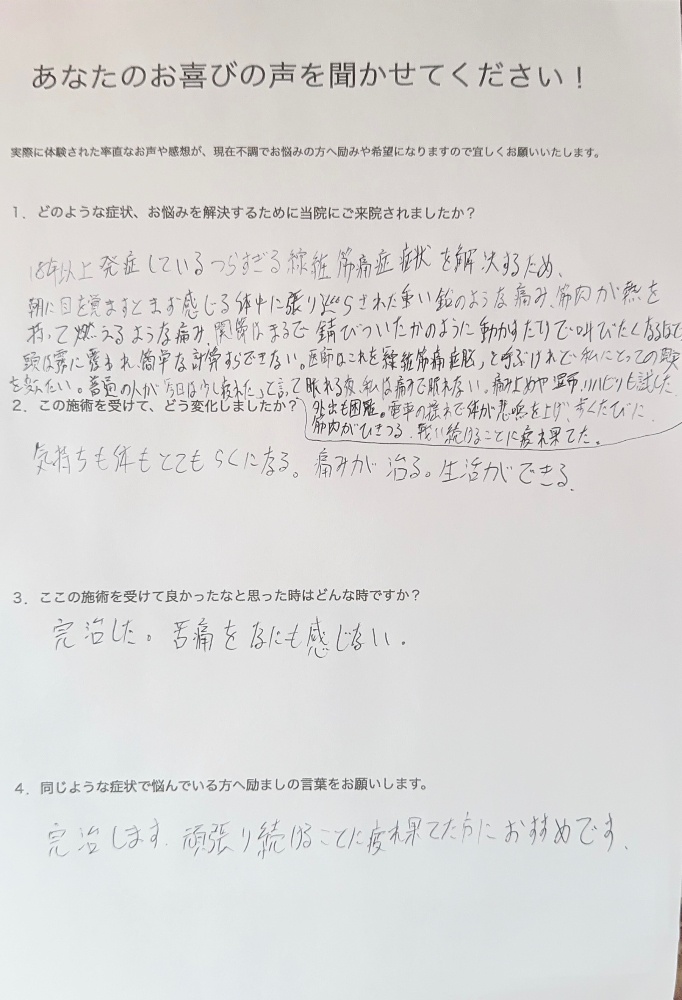 あなたのお喜びの声を聞かせてください！
実際に体験された率直なお声や感想が、現在不調でお悩みの方へ励みや希望になりますので宜しくお願いいたします。
１．どのような症状、お悩みを解決するために当院にご来院されましたか？
18年以上発症しているつらすぎる線維筋痛症症状を解決するため、
朝に目を覚ますとまず感じる体中に張り巡らされた重い鉛のような痛み、筋肉が熱を
持って燃えるような痛み、関節はまるで錆びついたかのように動かすたびで叫びたくなるほど
頭は霧に覆われ、簡単な計算すらできない。医師はこれを「線維筋痛症」と呼ぶけれど私にとっての現実
を変えたい。普通の人が「今日は少し疲れた」と言って眠れる夜、私は痛みで眠れない。痛み止めや リハビリも試した
２．この施術を受けて、どう変化しましたか？
外出も困難。電車の揺れで体が悲鳴を上げ、歩くたびに
筋肉がひきつる。戦い続けることに疲れ果てた。
気持ちも体もとてもらくになる。痛みが治る。生活ができる、
３．ここの施術を受けて良かったなと思った時はどんな時ですか？
完治した。苦痛をなにも感じない．
４．同じような症状で悩んでいる方へ励ましの言葉をお願いします。
完治します、頑張り続けることに疲れ果てた方におすすめです、